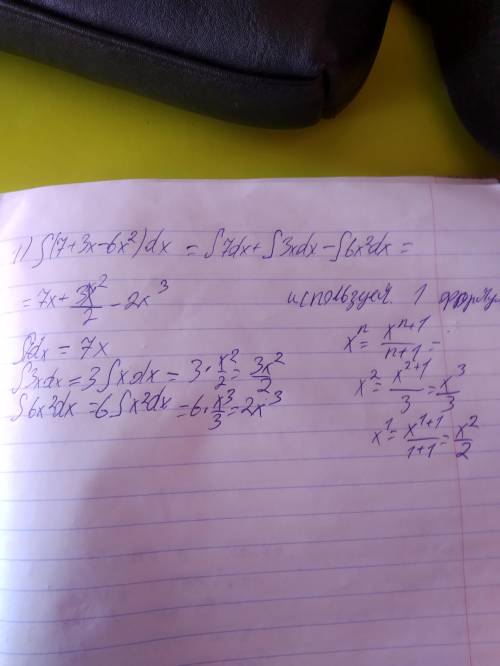 1) ∫(7+3x-6x²)dx = ∫7dx+∫3xdx-∫6x²dx=
= 7x+3x²/2-2x³
используем 1 формулу
∫7dx = 7x
∫3xdx=3∫xdx=3·x²/2=3x²/2
∫6x²dx=6∫x²dx=6·x³/3=2x³
xⁿ=xⁿ⁺¹/n+1=
x²=x²⁺¹/3=x³/3
x¹=x¹⁺¹/1+1=x²/2